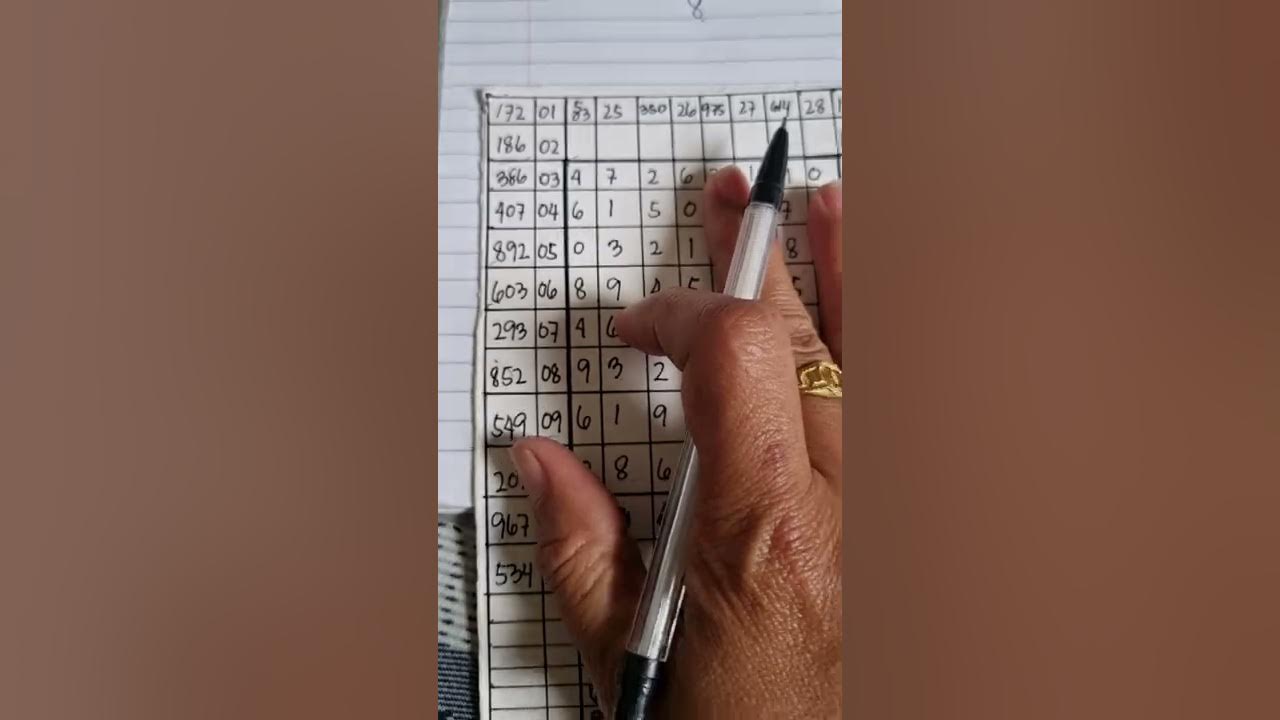 8
172 01 583 25 350 26 975 27 614 28
186 02
386 03 4 7 2 6 1 0
407 04 6 1 5 0 7
892 05 0 3 2 1 8
603 06 8 9 4 5 5
293 07 4 6
852 08 9 3 2
549 09 6 1 9
20 8 6
967
534